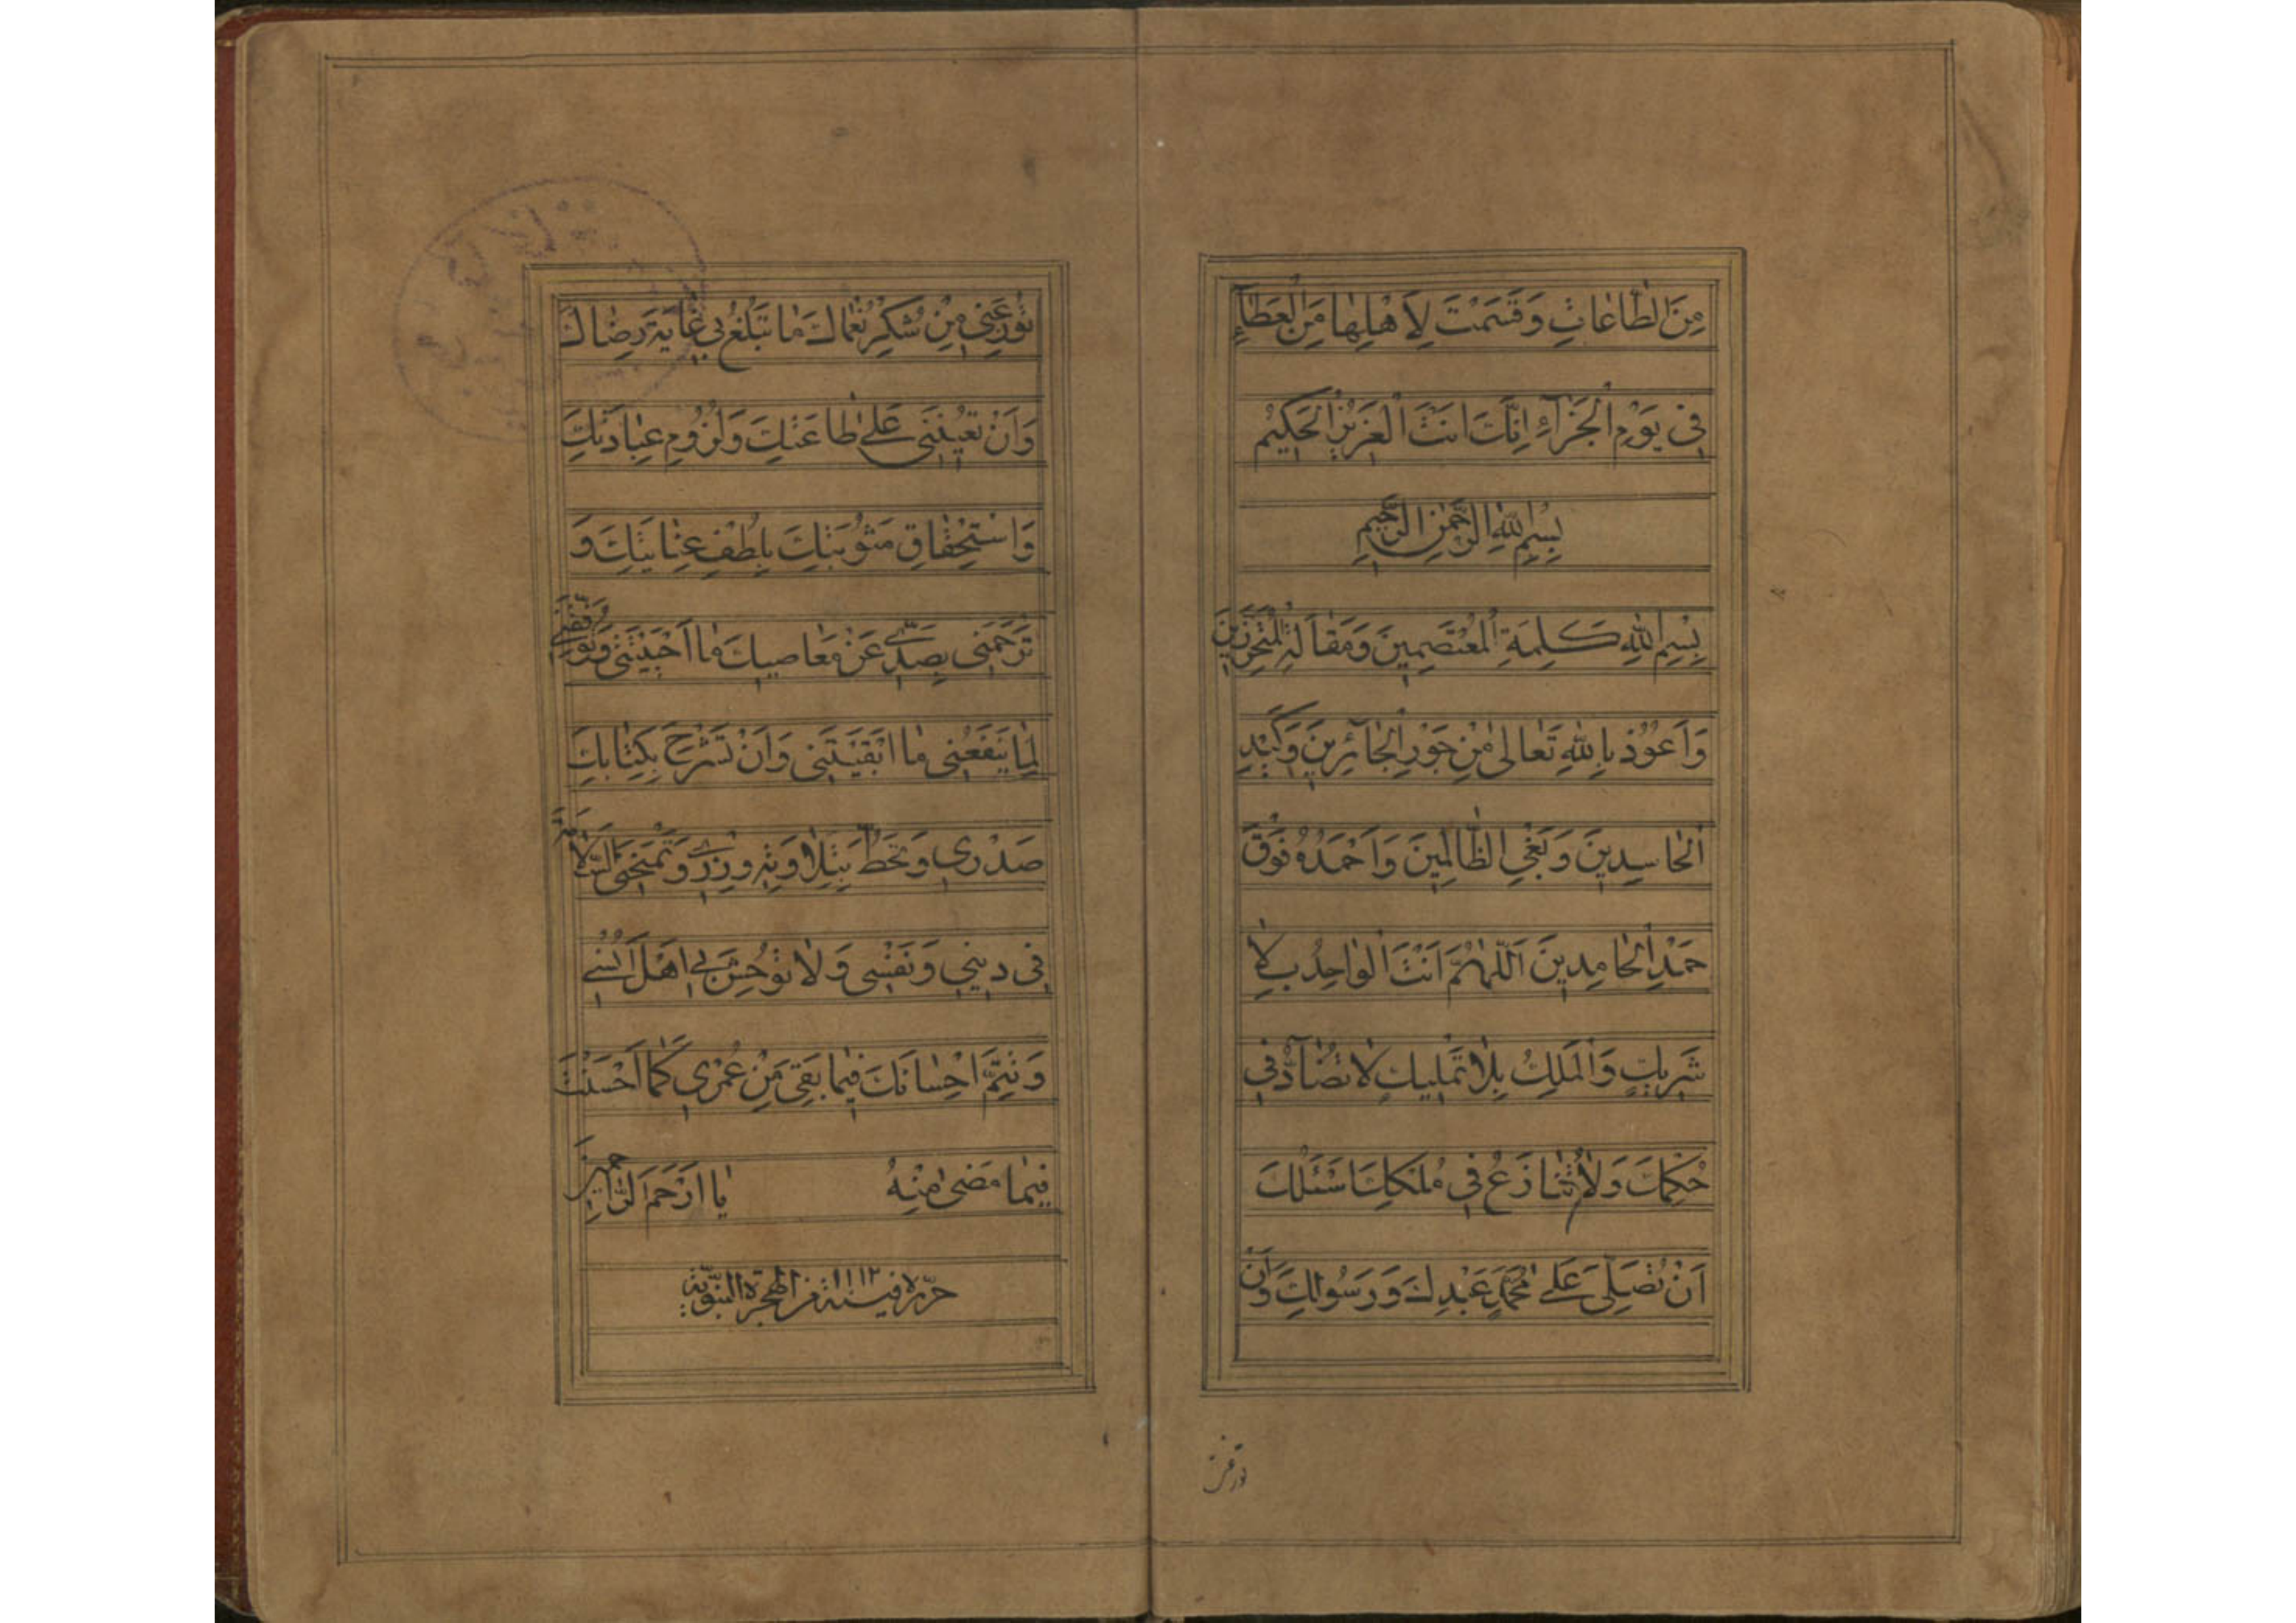 مِنَ الطّاعاتِ وَقَسَمْتَ لِاَهْلِها مِنَ الْعَطآءِ
فى يَوْمِ الْجَزآءِ اِنَّكَ اَنْتَ الْعَزيزُ الْحَكيمُ
بِسْمِ اللهِ الرَّحْمنِ الرَّحيمِ
بِسْمِ اللهِ كَلِمَةِ الْمُعْتَصِمينَ وَمَقالَةِ الْمُتَحَرِّزينَ
وَاَعُوذُ بِاللهِ تَعالى مِنْ جَوْرِ الْجآئِرينَ وَكَيْدِ
الْحاسِدينَ وَبَغْىِ الظّالِمينَ وَاَحْمَدُهُ فَوْقَ
حَمْدِ الْحامِدينَ اَللّهُمَّ اَنْتَ الْواحِدُ بِلا
شَريكٍ وَالْمَلِكُ بِلا تَمْليكٍ لا تُضآدُّ فى
حُكْمِكَ وَلا تُنازَعُ فى مُلْكِكَ اَسْئَلُكَ
اَنْ تُصَلِّىَ عَلى مُحَمَّدٍ عَبْدِكَ وَرَسُولِكَ وَاَنْ
تُوزِعَنى مِنْ شُكْرِ نُعْماكَ ما تَبْلُغُ بى غايَةَ رِضاكَ
وَاَنْ تُعينَنى عَلى طاعَتِكَ وَلُزُومِ عِبادَتِكَ
وَاسْتِحْقاقِ مَثُوبَتِكَ بِلُطْفِ عِنايَتِكَ وَ
تَرْحَمَنى بِصَدّى عَنْ مَعاصيكَ ما اَحْيَيْتَنى وَتُوَفِّقَنى
لِما يَنْفَعُنى ما اَبْقَيْتَنى وَاَنْ تَشْرَحَ بِكِتابِكَ
صَدْرى وَتَحُطَّ بِتِلاوَتِهِ وِزْرى وَتَمْنَحَنِى السَّلامَةَ
فى دينى وَنَفْسى وَلا تُوحِشَ بى اَهْلَ اُنْسى
وَتُتِمَّ اِحْسانَكَ فيما بَقِىَ مِنْ عُمْرى كَما اَحْسَنْتَ
فيما مَضى مِنْهُ يا اَرْحَمَ الرّاحِمينَ
حرّره فى سنة ١١١٢ من الهجرة النّبويّة